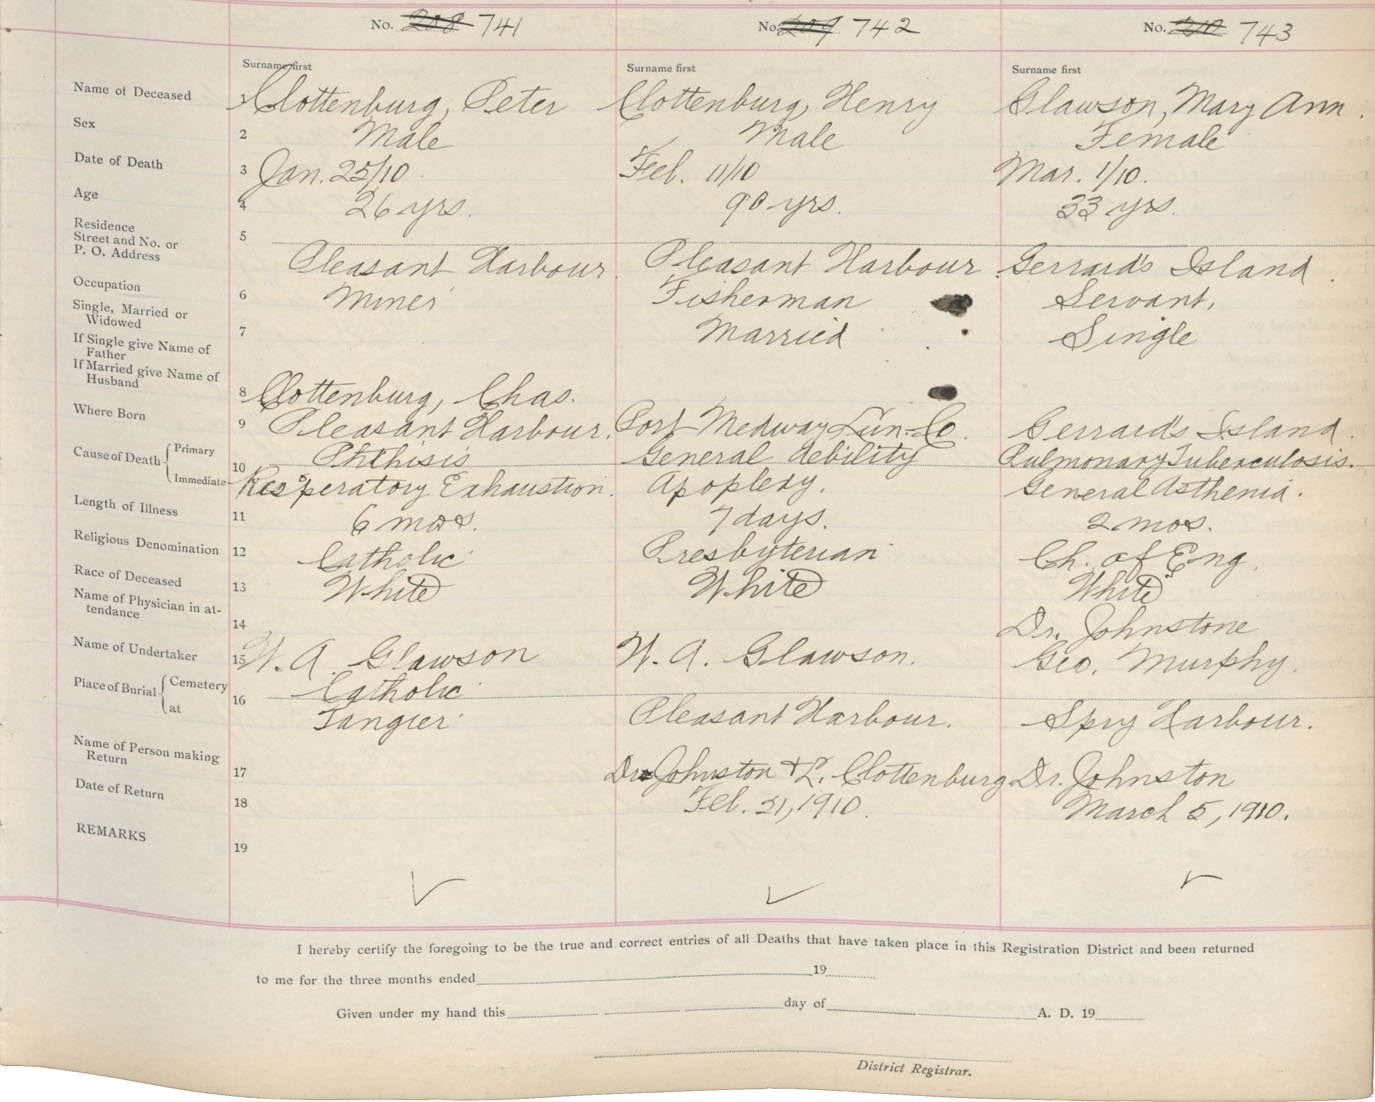 No. 208 741
No. 209 742
No. 210 743
Surname first
Surname first
Surname first
Name of Deceased 1 Clottenburg, Peter Clottenburg, Henry Glawson, Mary Ann.
Sex 2 Male Male Female
Date of Death 3 Jan. 25/10. Feb. 11/10 Mar. 1/10.
Age 4 26 yrs. 90 yrs. 33 yrs.
Residence
Street and No. or
P. O. Address
5 Pleasant Harbour. Pleasant Harbour. Gerrard's Island.
Occupation 6 Miner Fisherman Servant,
Single, Married or
Widowed
7 Married Single
If Single give Name of
Father
If Married give Name of
Husband
8 Clottenburg, Chas.
Where Born 9 Pleasant Harbour. Port Medway Lun. Co. Gerrard's Island.
Cause of Death Primary 10 Phthisis General debility Pulmonary Tuberculosis.
Immediate Resperatory Exhaustion. Apoplexy. General Asthenia.
Length of Illness 11 6 mos. 7 days. 2 mos.
Religious Denomination 12 Catholic Presbyterian Ch. of Eng.
Race of Deceased 13 White White White
Name of Physician in at-
tendance
14 Dr. Johnstone
Name of Undertaker 15 W. A. Glawson W. A. Glawson. Geo. Murphy.
Place of Burial Cemetery 16 Catholic
at Tangier Pleasant Harbour. Spry Harbour.
Name of Person making
Return
17 Dr. Johnston & L. Clottenburg Dr. Johnston
Date of Return 18 Feb. 21, 1910. March 5, 1910.
REMARKS 19
I hereby certify the foregoing to be the true and correct entries of all Deaths that have taken place in this Registration District and been returned
to me for the three months ended 19
Given under my hand this day of A. D. 19
District Registrar.